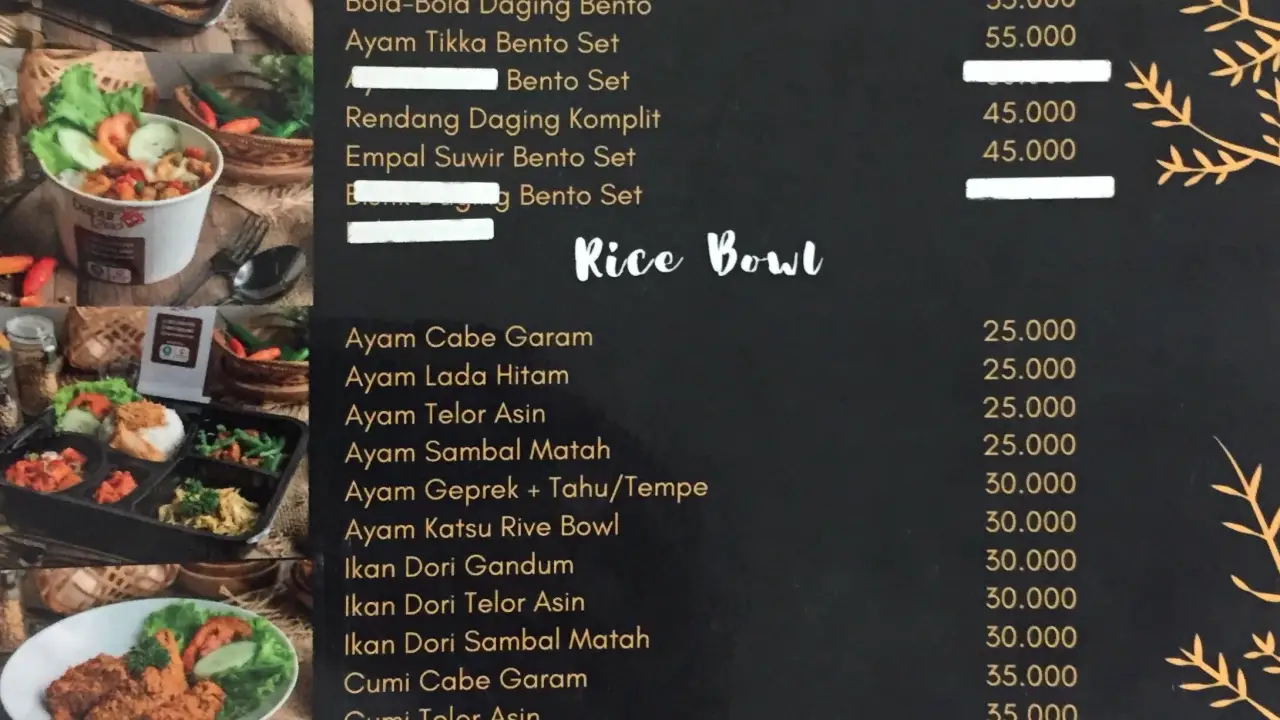 Bola-Bola Daging Bento 55.000
Ayam Tikka Bento Set 55.000
Bento Set
Rendang Daging Komplit 45.000
Empal Suwir Bento Set 45.000
Bento Set
Rice Bowl
Ayam Cabe Garam 25.000
Ayam Lada Hitam 25.000
Ayam Telor Asin 25.000
Ayam Sambal Matah 25.000
Ayam Geprek + Tahu/Tempe 30.000
Ayam Katsu Rive Bowl 30.000
Ikan Dori Gandum 30.000
Ikan Dori Telor Asin 30.000
Ikan Dori Sambal Matah 30.000
Cumi Cabe Garam 35.000
Cumi Telor Asin 35.000